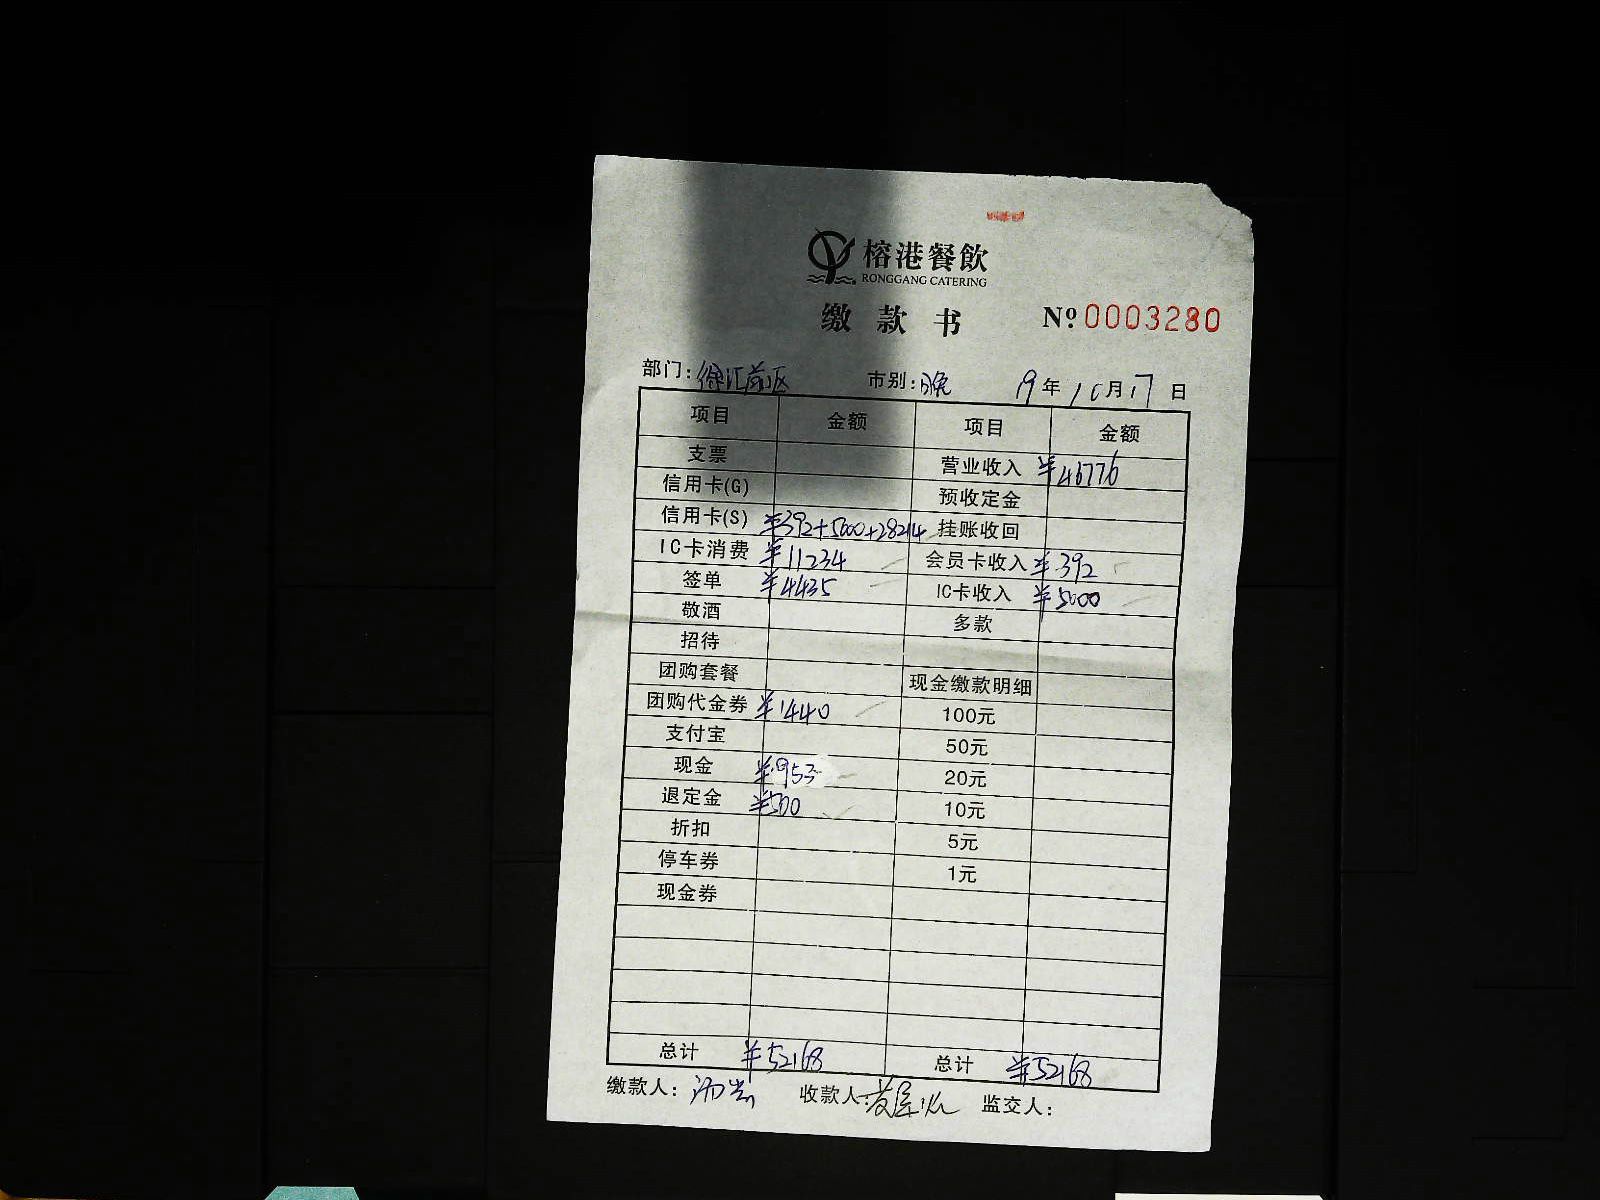 榕港餐飲
RONGGANG CATERING
缴款书 №0003280
部门:徐汇前区 市别:晚 19年10月17日
项目 金额 项目 金额
支票 营业收入 ¥46776
信用卡(G) 预收定金
信用卡(S) ¥392+5000+28214 挂账收回
IC卡消费 ¥11234 会员卡收入 ¥392
签单 ¥4435 IC卡收入 ¥5000
敬酒 多款
招待
团购套餐 现金缴款明细
团购代金券 ¥1440 100元
支付宝 50元
现金 ¥953 20元
退定金 ¥500 10元
折扣 5元
停车券 1元
现金券
总计 ¥52168 总计 ¥52168
缴款人: 收款人: 监交人: